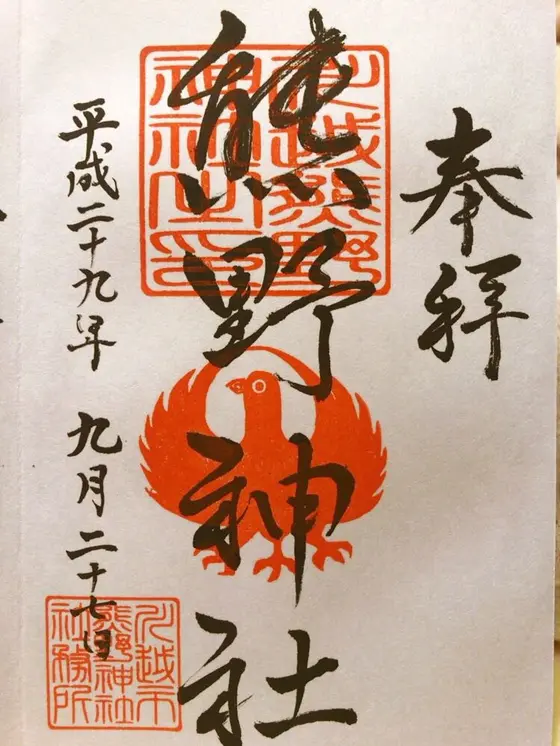 奉拝
熊野神社
川越熊野
神社之印
平成二十九年 九月二十七日
川越市
熊野神社
社務所